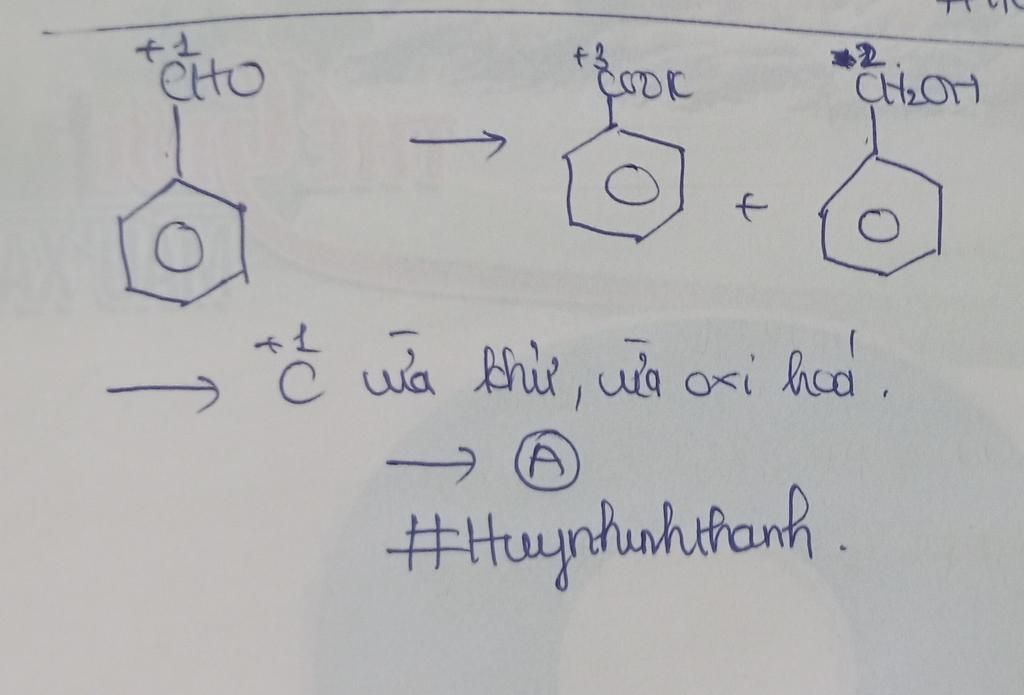 +1 +3 -2
CHO → COOK + CH₂OH
→ +1
C vừa khử, vừa oxi hoá.
→ A
#Huynhinhthanh.